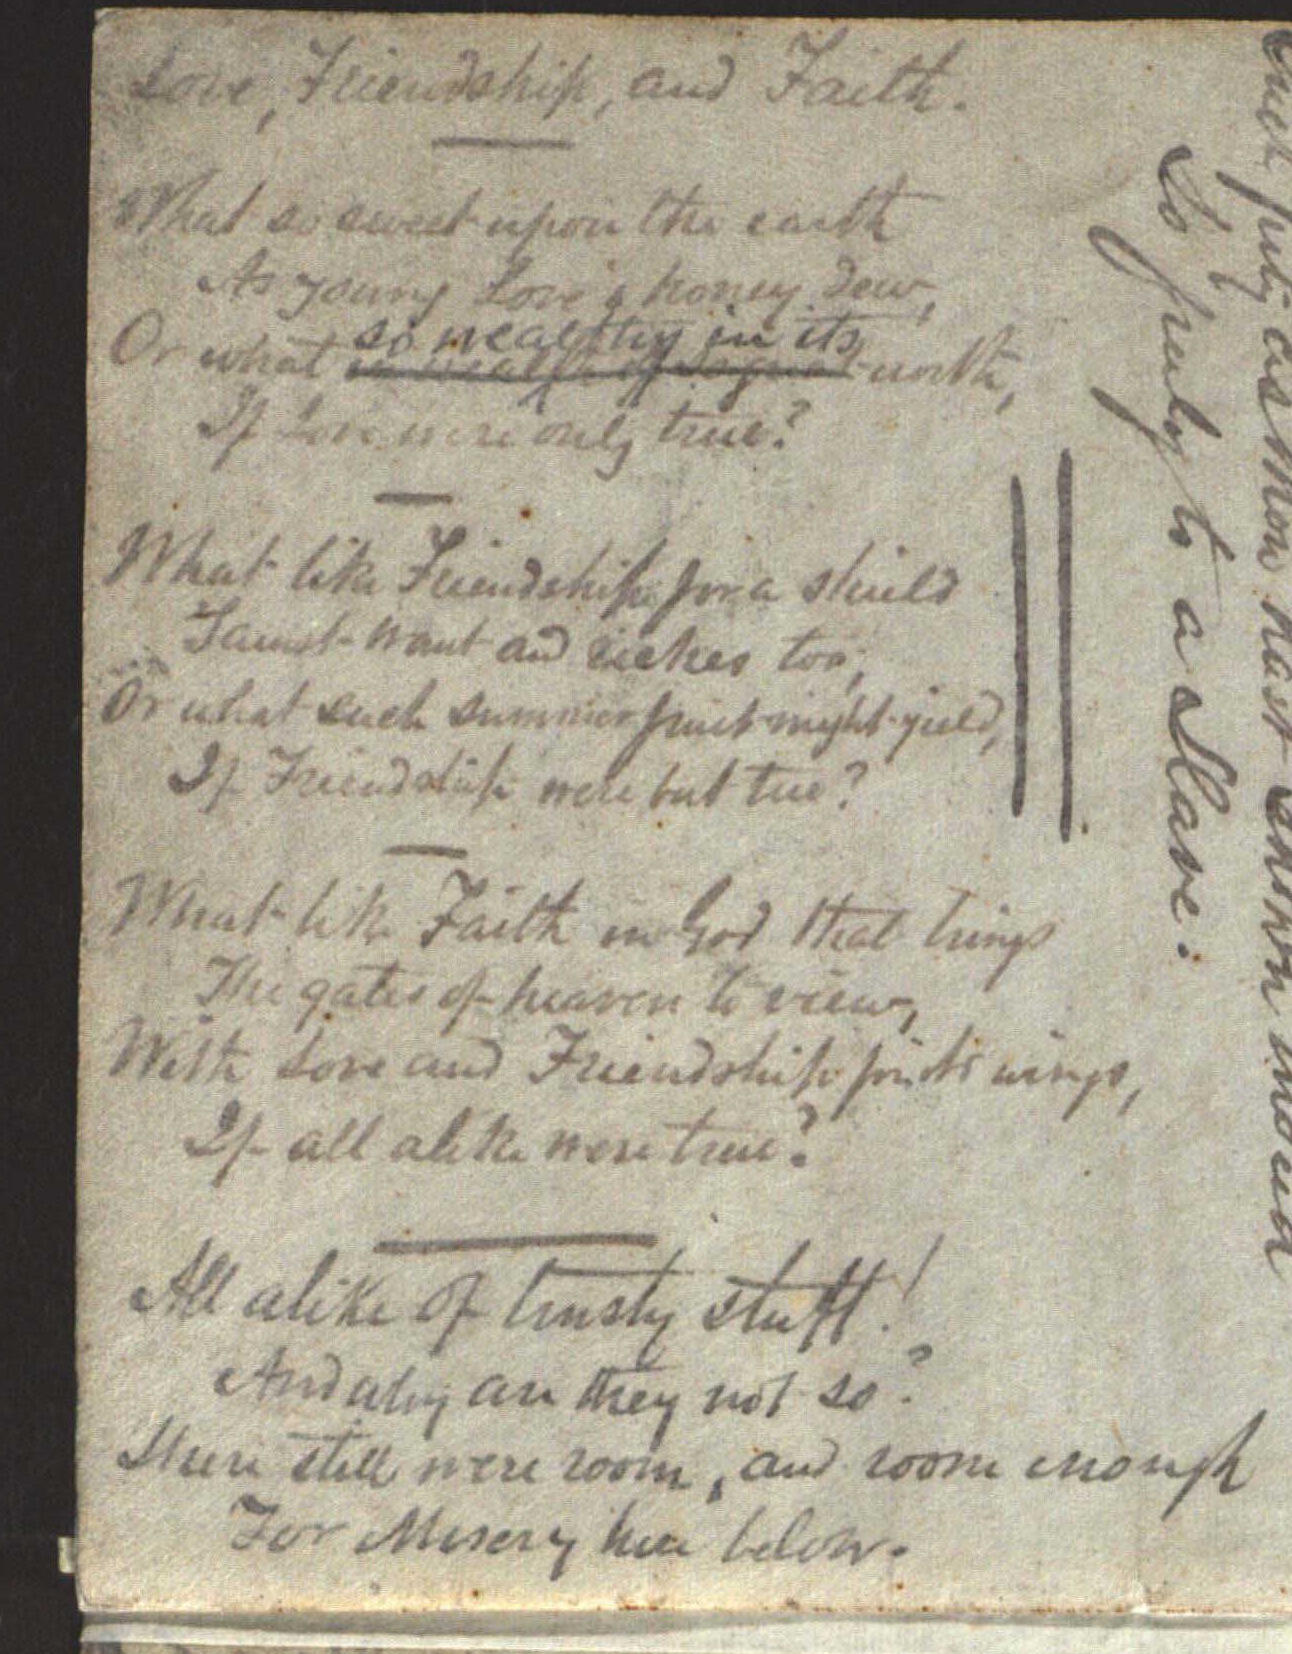 Love, Friendship, and Faith.
What so sweet upon the earth
As young Love's honey dew,
Or what so wealthy in its worth,
If Love were only true?
What like Friendship for a shield
'Gainst want and sickness too,
Or what such summer fruit might yield,
If Friendship were but true?
What like Faith in God that brings
The gates of heaven to view,
With Love and Friendship wings,
If all alike were true?
All alike of trusty stuff!
And why are they not so?
There still were room, and room enough
For Misery here below.
to a Slave: